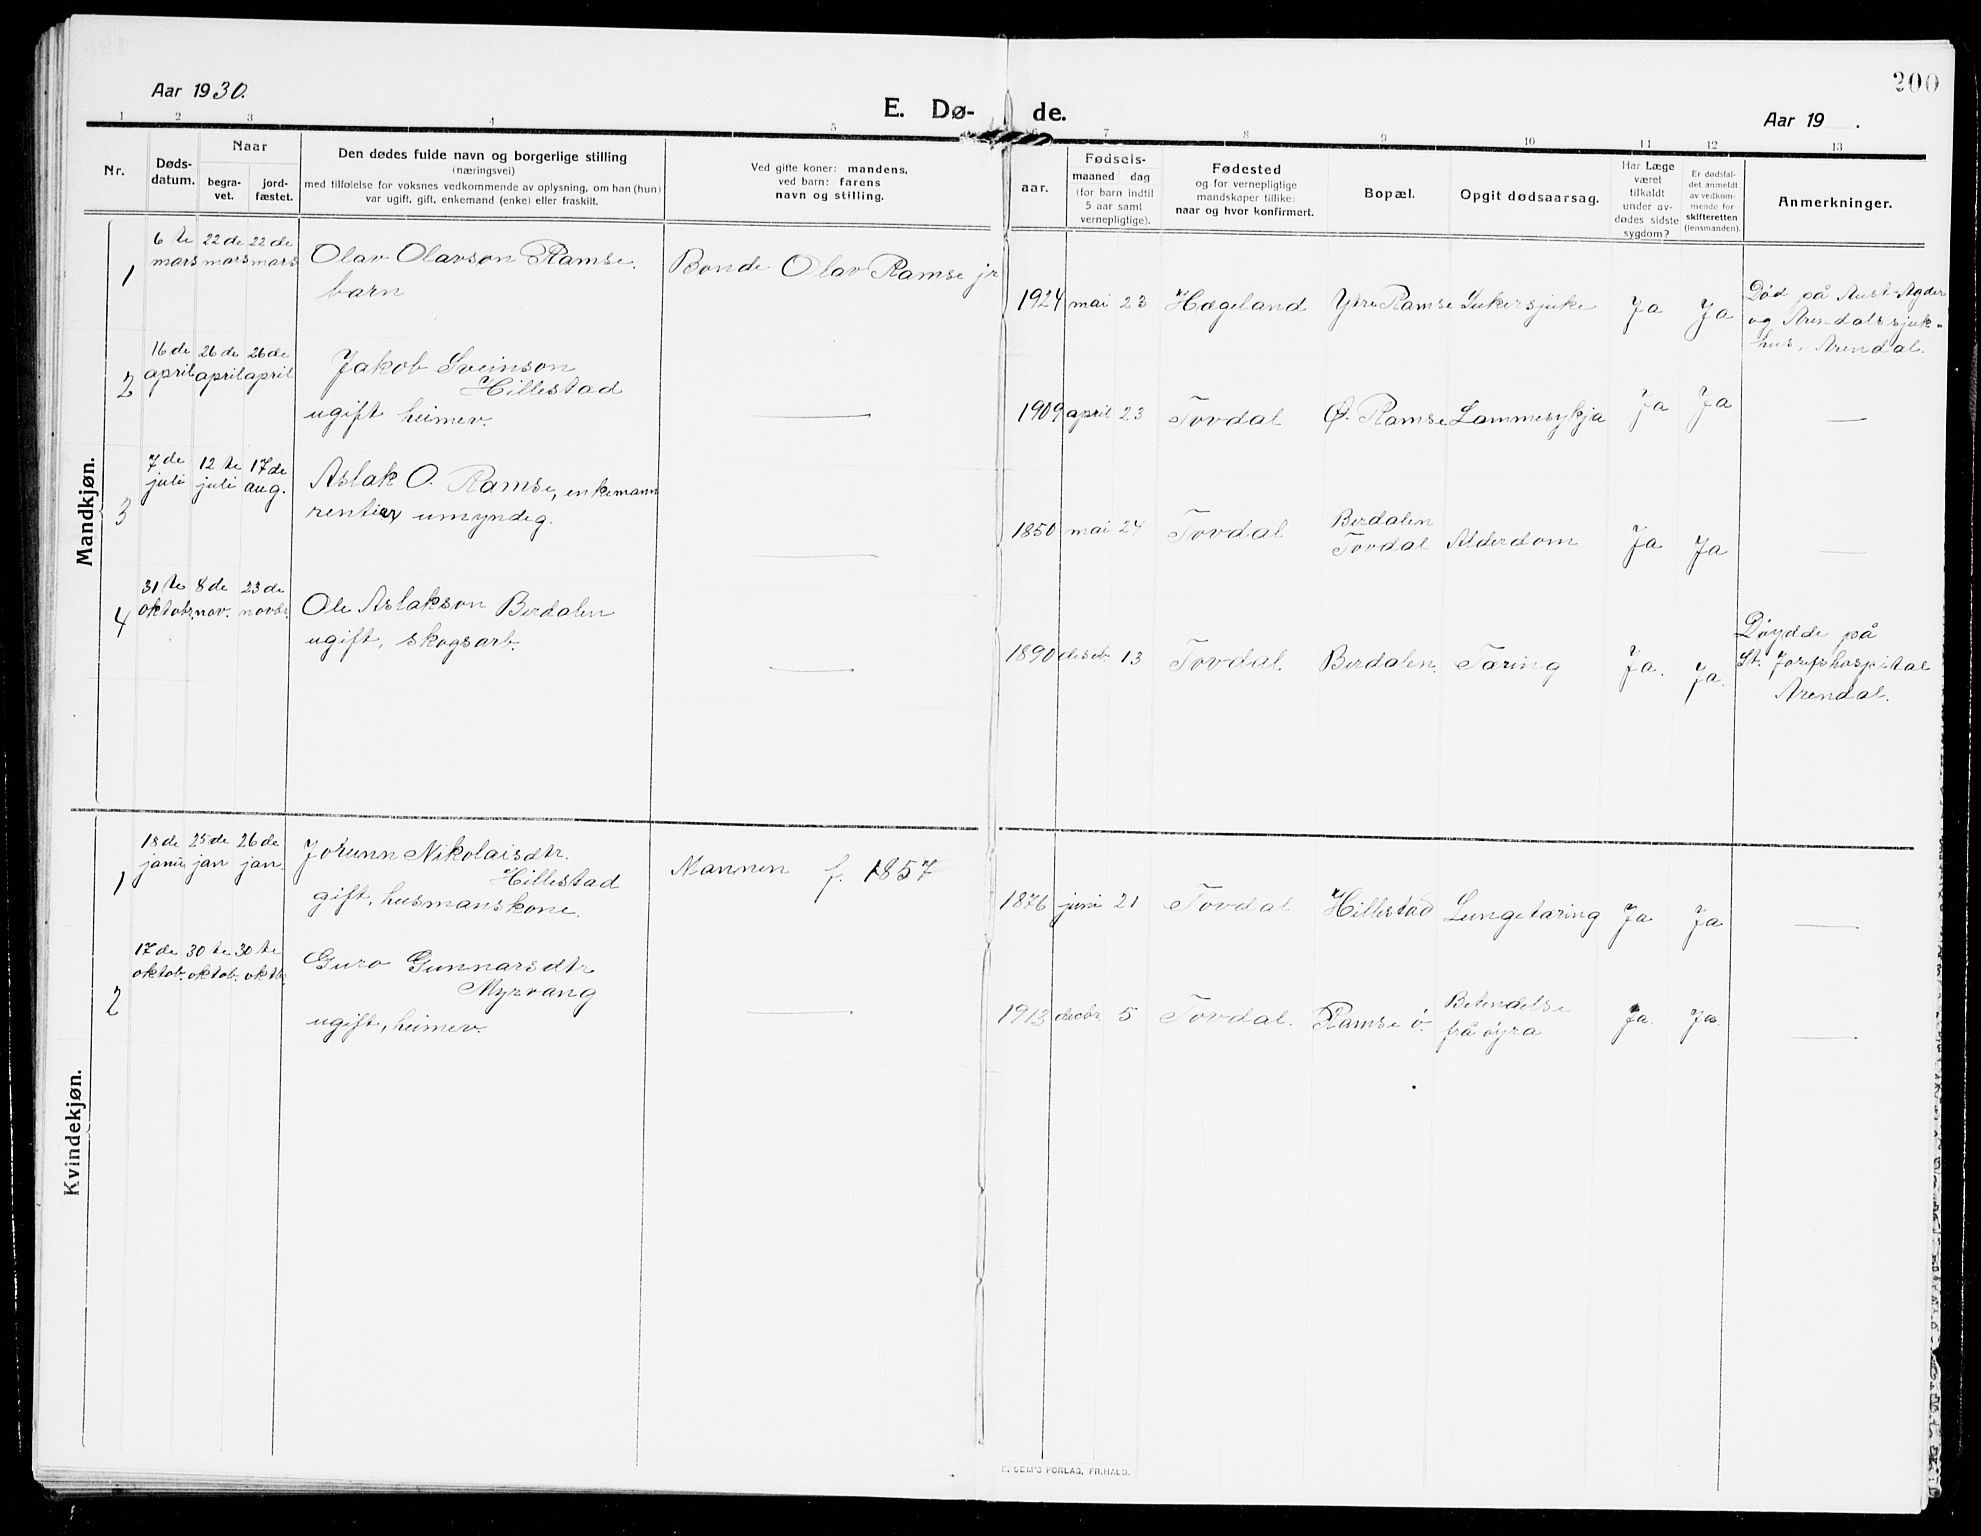 200
Aar 1930.
E. Dø-
de.
Aar 19 .
1 2 3 4 5 6 7 8 9 10 11 12 13
Nr.
Døds-
datum.
Naar
begra-
vet.
jord-
fæstet.
Den dødes fulde navn og borgerlige stilling
(næringsvei)
med tilføielse for voksnes vedkommende av oplysning, om han (hun)
var ugift, gift, enkemand (enke) eller fraskilt.
Ved gifte koner: mandens,
ved barn: farens
navn og stilling.
aar.
Fødsels-
maaned dag
(for barn indtil
5 aar samt
vernepligtige).
Fødested
og for vernepligtige
mandskaper tillike:
naar og hvor konfirmert.
Bopæl.
Opgit dødsaarsag.
Har Læge
været
tilkaldt
under av-
dødes sidste
sygdom?
Er dødsfal-
det anmeldt
av vedkom-
mende for
skifteretten
(lensmanden).
Anmerkninger.
Mandkjøn.
1
6te
mars
22de
mars
22de
mars
Olav Olavson Ramse.
barn
Bonde Olav Ramse jr
1924 mai 23 Hægeland Ytre Ramse Sukersjuke Ja Ja
Død på Aust-Agder
og Arendals sjuk-
hus, Arendal.
2
16de
april
26de
april
26de
april
Jakob Sveinson
Hillestad
ugift heimev.
1909 april 23 Tovdal Ø. Ramse Lammesykja Ja Ja
3
7de
juli
12te
juli
17de
aug.
Aslak O. Ramse, enkemann
rentier umyndeg.
1850 mai 24 Tovdal
Berdalen
Tovdal
Alderdom Ja Ja
4
31te
oktob.
8de
nov.
23de
novbr.
Ole Aslakson Berdalen
ugift, skogsarb.
1890 deseb. 13 Tovdal Berdalen. Tæring Ja. Ja.
Døydde på
St. Josefshospital
Arendal.
Kvindekjøn.
1
18de
janu.
25de
jan
26de
jan.
Jorunn Nikolaisdtr.
Hillestad
gift, husmanskone.
Mannen f. 1857
1876 juni 21 Tovdal Hillestad Lungetæring Ja Ja
2
17de
oktob.
30te
oktob.
30te
oktb.
Guro Gunnarsdtr
Myrvang
ugift, heimev.
1913 decbr. 5 Tovdal. Ramse ö.
Betendelse
frå øyra
Ja. Ja.
FORLAG, FR.HALD.